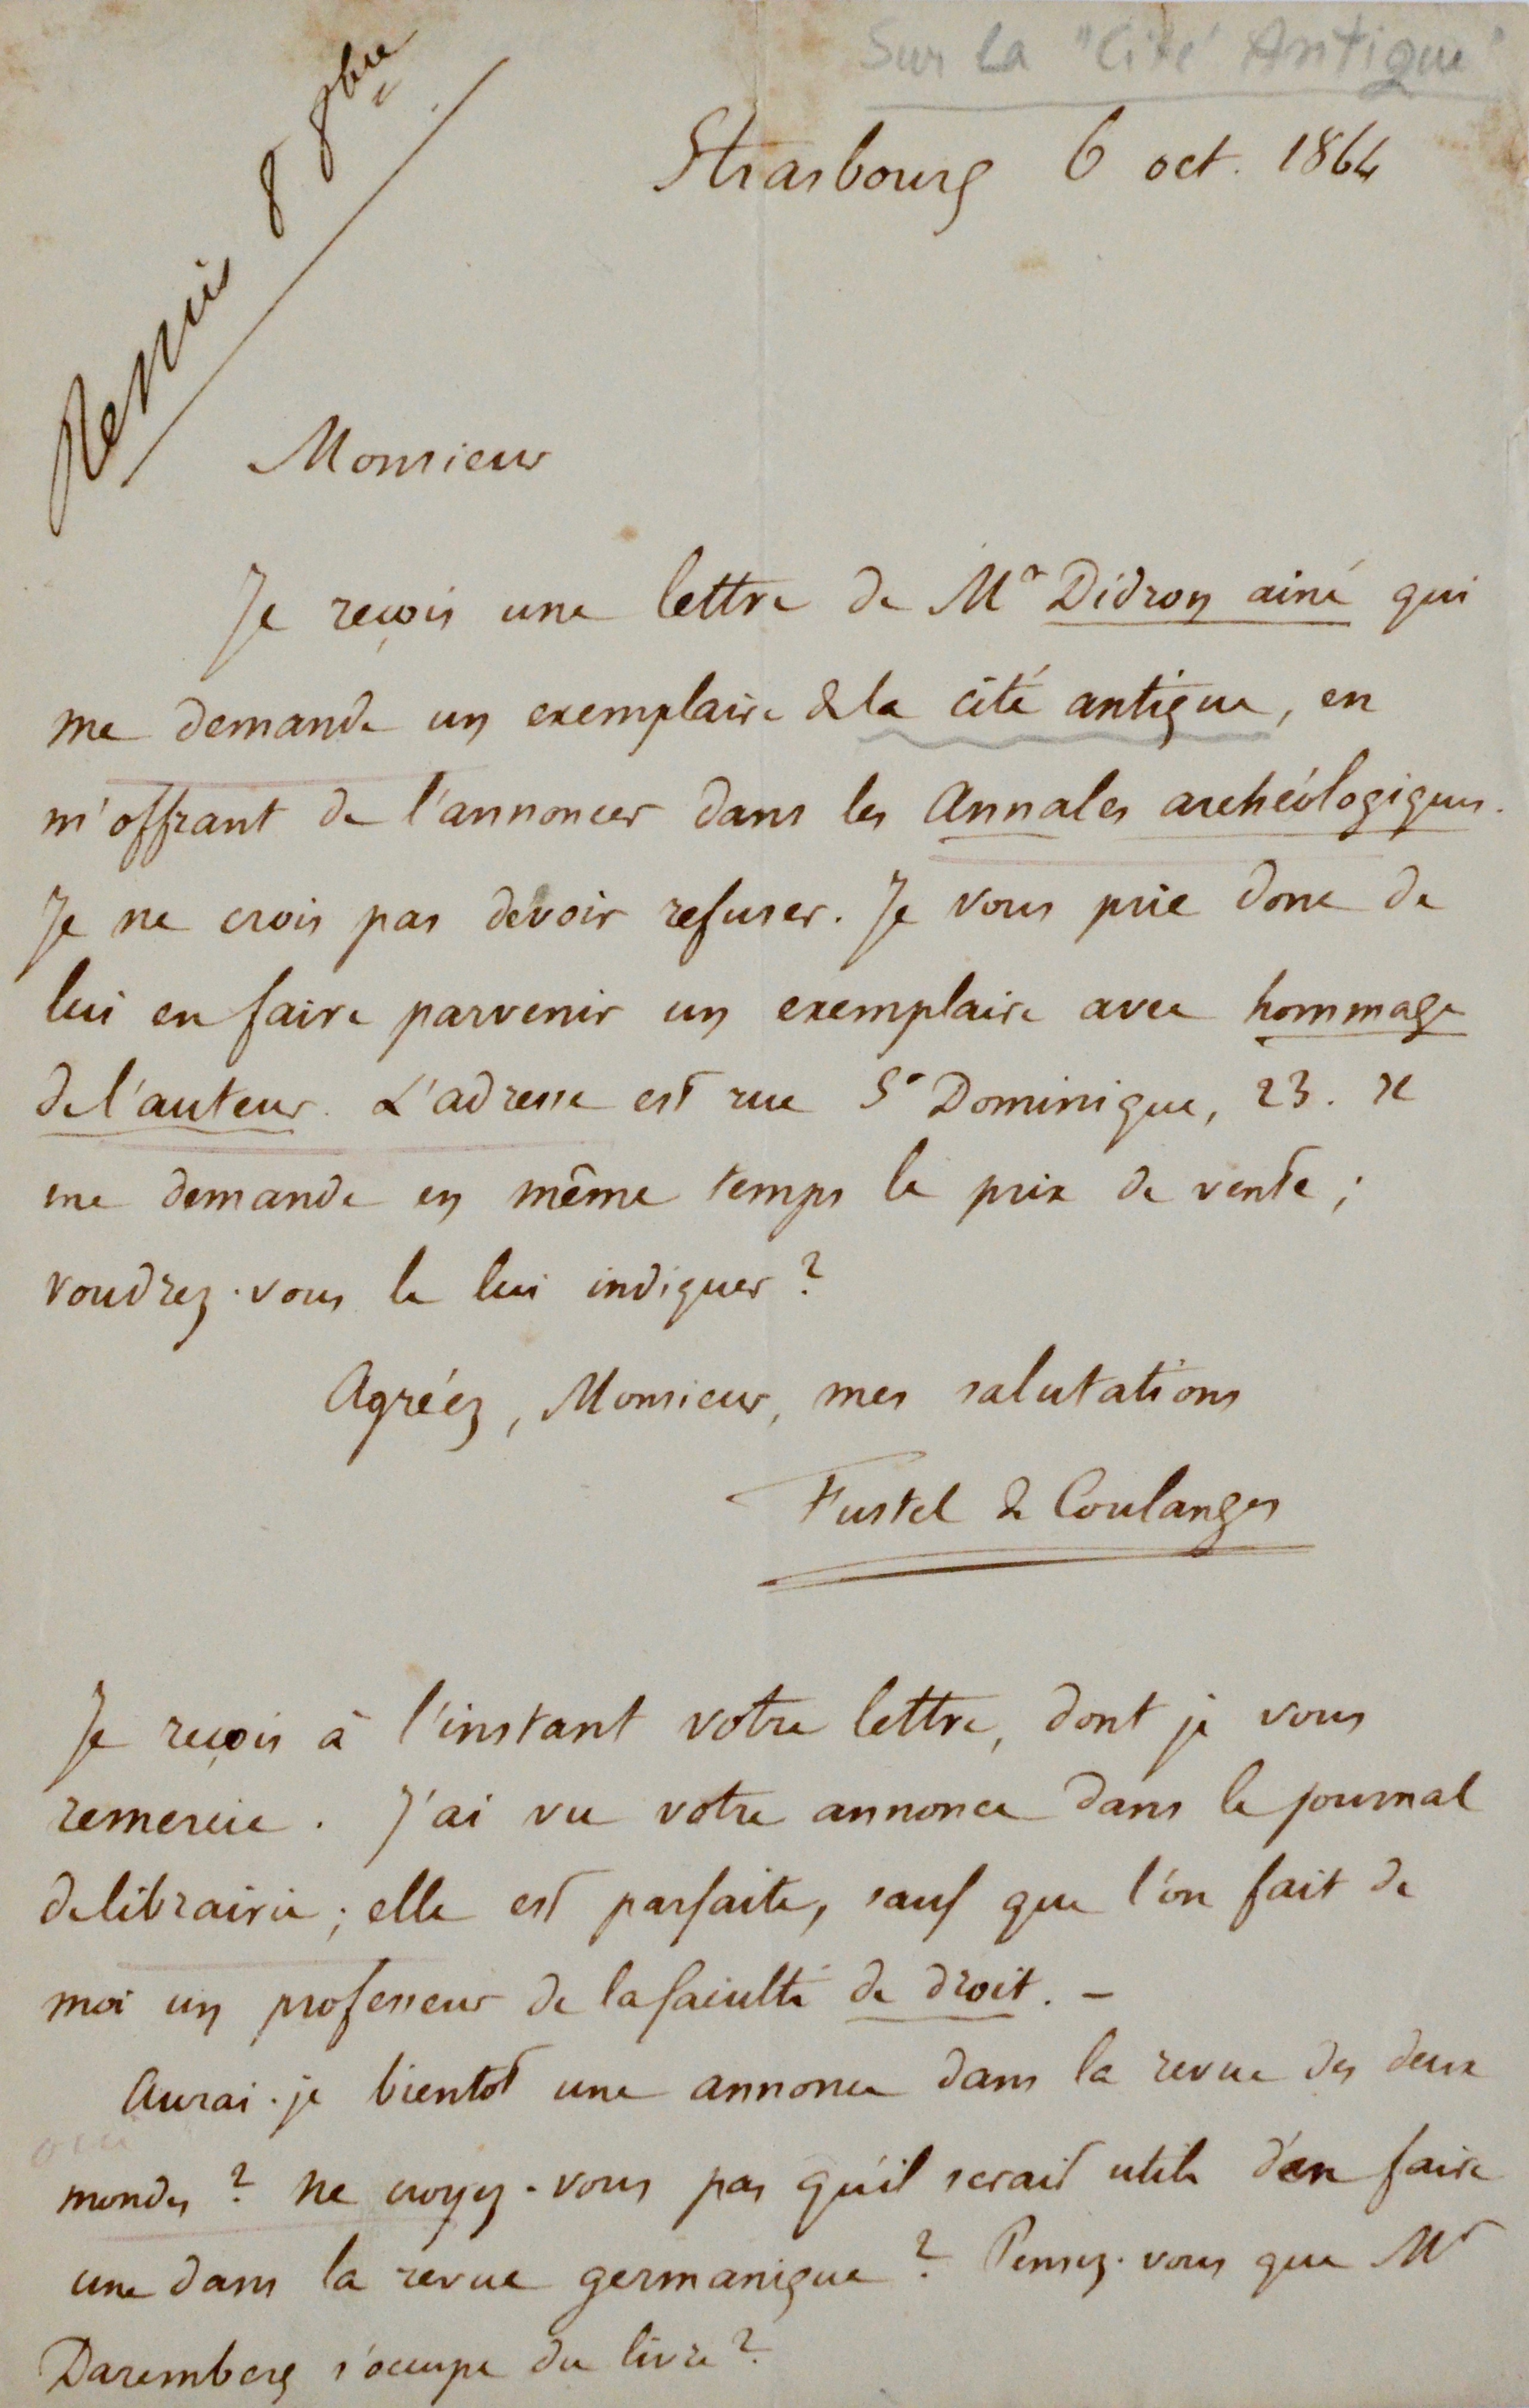 Sur la "Cité Antique"
Remis 8 8bre
Strasbourg 6 oct. 1864
Monsieur
Je reçois une lettre de Mr Didron ainé qui
me demande un exemplaire de la cité antique, en
m'offrant de l'annoncer dans les Annales archéologiques.
Je ne crois pas devoir refuser. Je vous prie donc de
lui en faire parvenir un exemplaire avec hommage
de l'auteur. L'adresse est rue St Dominique, 23. Il
me demande en même temps le prix de vente ;
voudrez-vous le lui indiquer ?
Agréez, Monsieur, mes salutations
Fustel de Coulanges
Je reçois à l'instant votre lettre, dont je vous
remercie. J'ai vu votre annonce dans le journal
de librairie ; elle est parfaite, sauf que l'on fait de
moi un professeur de la faculté de droit. –
Aurai-je bientot une annonce dans la revue des deux
oui
mondes ? Ne croyez-vous pas qu'il serait utile d'en faire
une dans la revue germanique ? Pensez-vous que Mr
Daremberg s'occupe du livre ?